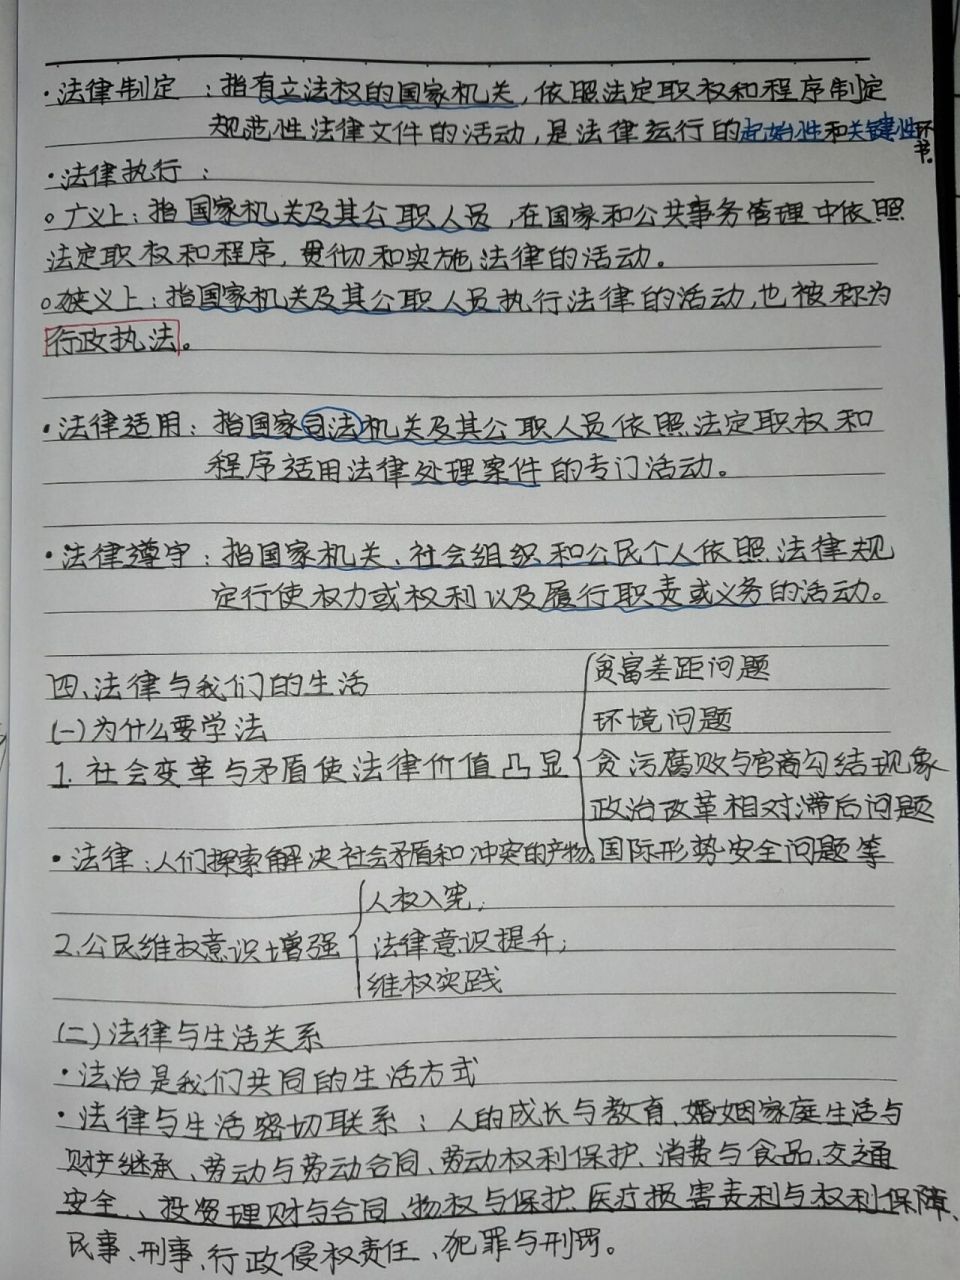 ·法律制定：指有立法权的国家机关，依照法定职权和程序制定
规范性法律文件的活动，是法律运行的起始性和关键性环节。
·法律执行：
○广义上：指国家机关及其公职人员，在国家和公共事务管理中依照
法定职权和程序，贯彻和实施法律的活动。
○狭义上：指国家机关及其公职人员执行法律的活动，也被称为
行政执法。
·法律适用：指国家司法机关及其公职人员依照法定职权和
程序适用法律处理案件的专门活动。
·法律遵守：指国家机关、社会组织和公民个人依照法律规
定行使权力或权利以及履行职责或义务的活动。
四、法律与我们的生活
(一)为什么要学法
1. 社会变革与矛盾使法律价值凸显
贫富差距问题
环境问题
贪污腐败与官商勾结现象
政治改革相对滞后问题
国际形势安全问题等
·法律：人们探索解决社会矛盾和冲突的产物。
2.公民维权意识增强
人权入宪；
法律意识提升；
维权实践
(二)法律与生活关系
·法治是我们共同的生活方式
·法律与生活密切联系：人的成长与教育、婚姻家庭生活与
财产继承、劳动与劳动合同、劳动权利保护、消费与食品、交通
安全、投资理财与合同、物权与保护、医疗损害责利与权利保障、
民事、刑事、行政侵权责任、犯罪与刑罚。